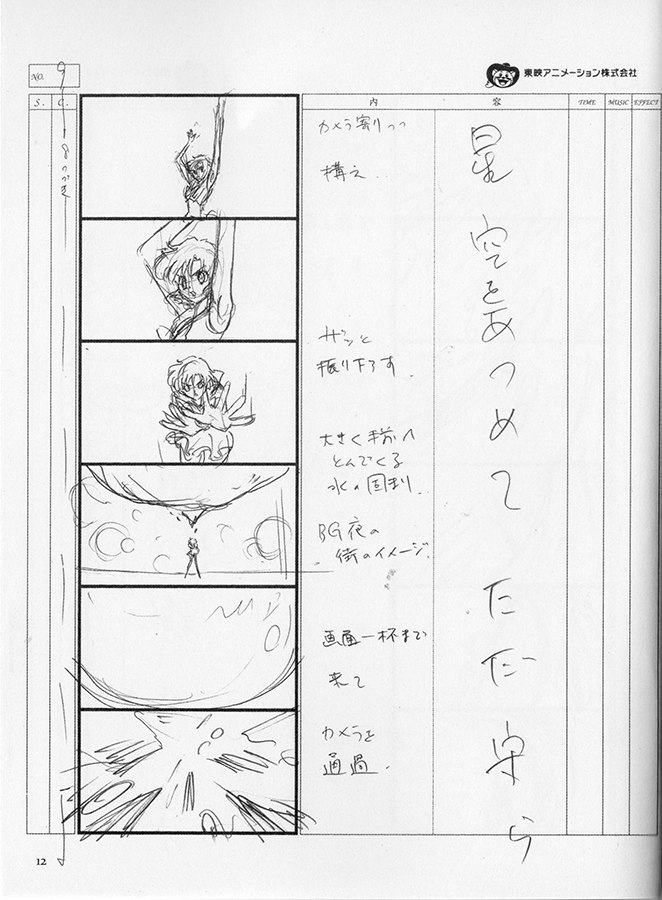 NO. 9
東映アニメーション株式会社
S. C. 内 容 TIME MUSIC EFFECT
8つづき
カメラ寄りつつ
構え.
ザッと
振り下ろす.
大きく手前へ
とんでくる
水の固まり.
BG夜の
街のイメージ.
画面一杯まで
来て
カメラを
通過.
星空をあつめて ただ守ら
12